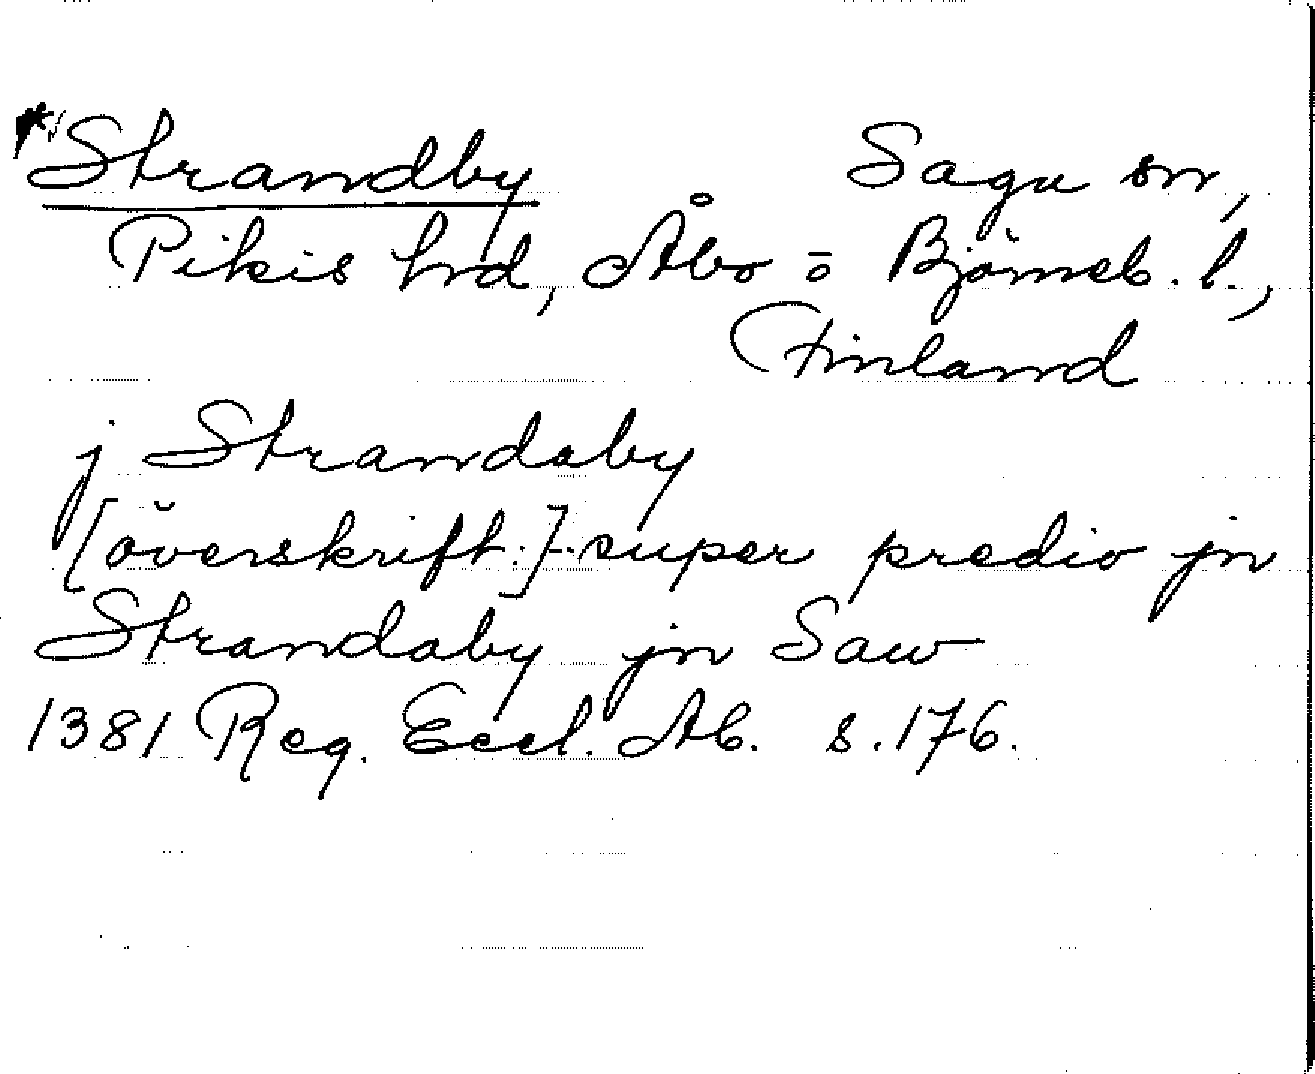 *Strandby Sagu sn,
Pikis hrd, Åbo o Björneb. l.,
Finland
j Strandaby
[överskift.] - super predio jn
Strandaby jn Saw
1381 Reg. Eccl. Ab. s. 176.